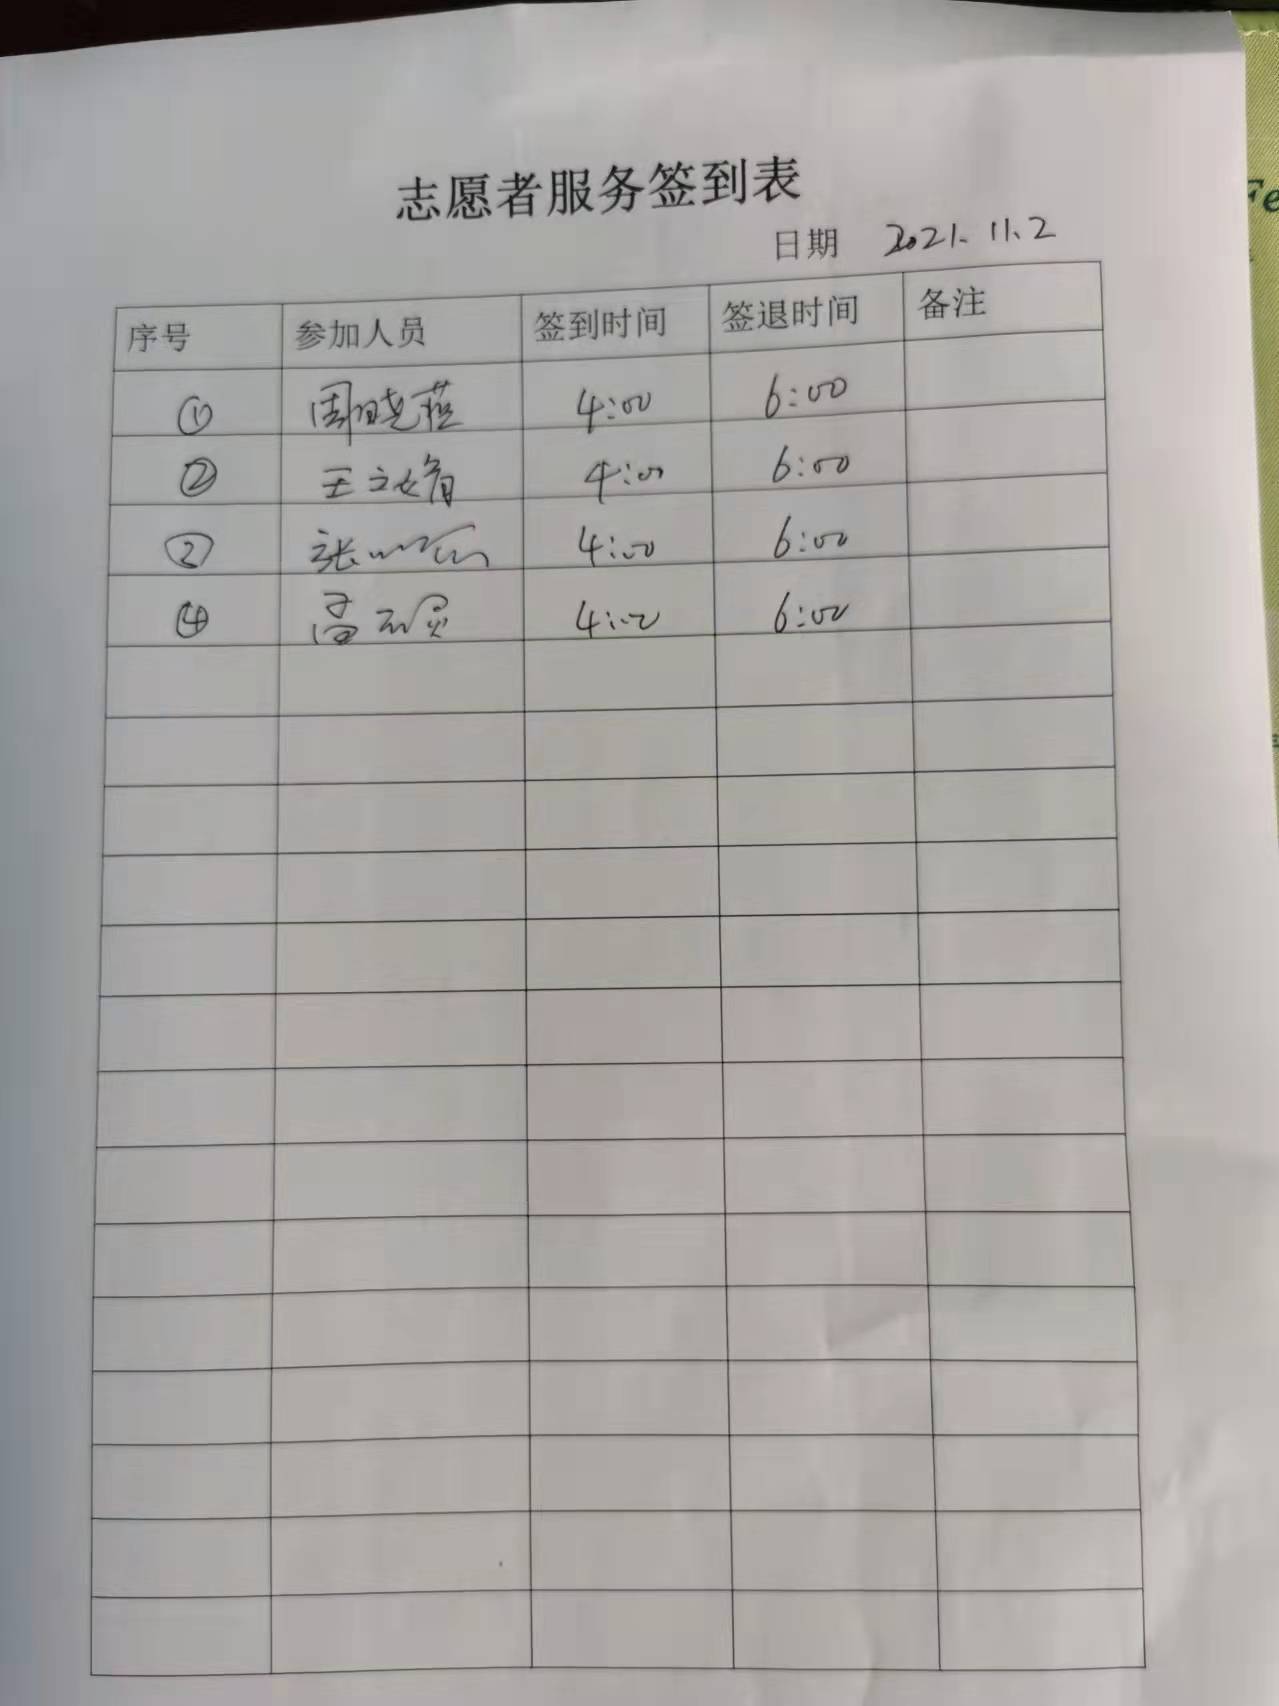 志愿者服务签到表
日期 2021.11.2
序号 参加人员 签到时间 签退时间 备注
① 周晓燕 4:00 6:00
② 王文娟 4:00 6:00
③ 张 4:00 6:00
④ 4:00 6:00
Fe